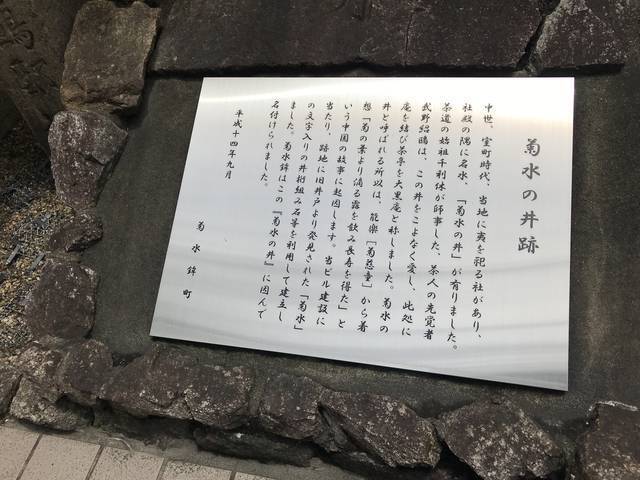 菊水の井跡
中世、室町時代、当地に夷を祀る社があり、
社殿の隅に名水、「菊水の井」が有りました。
茶道の始祖千利休が師事した、茶人の先覚者
武野紹鴎は、この井をこよなく愛し、此処に
庵を結び茶亭を大黒庵と称しました。菊水の
井と呼ばれる所以は、能楽〔菊慈童〕から着
想「菊の葉より滴る露を飲み長寿を得た」と
いう中国の故事に起因します。当ビル建設に
当たり、跡地に旧井戸より発見された「菊水」
の文字入りの井桁組み石等を利用して建立し
ました。菊水鉾はこの『菊水の井』に因んで
名付けられました。
平成十四年九月
菊水鉾町